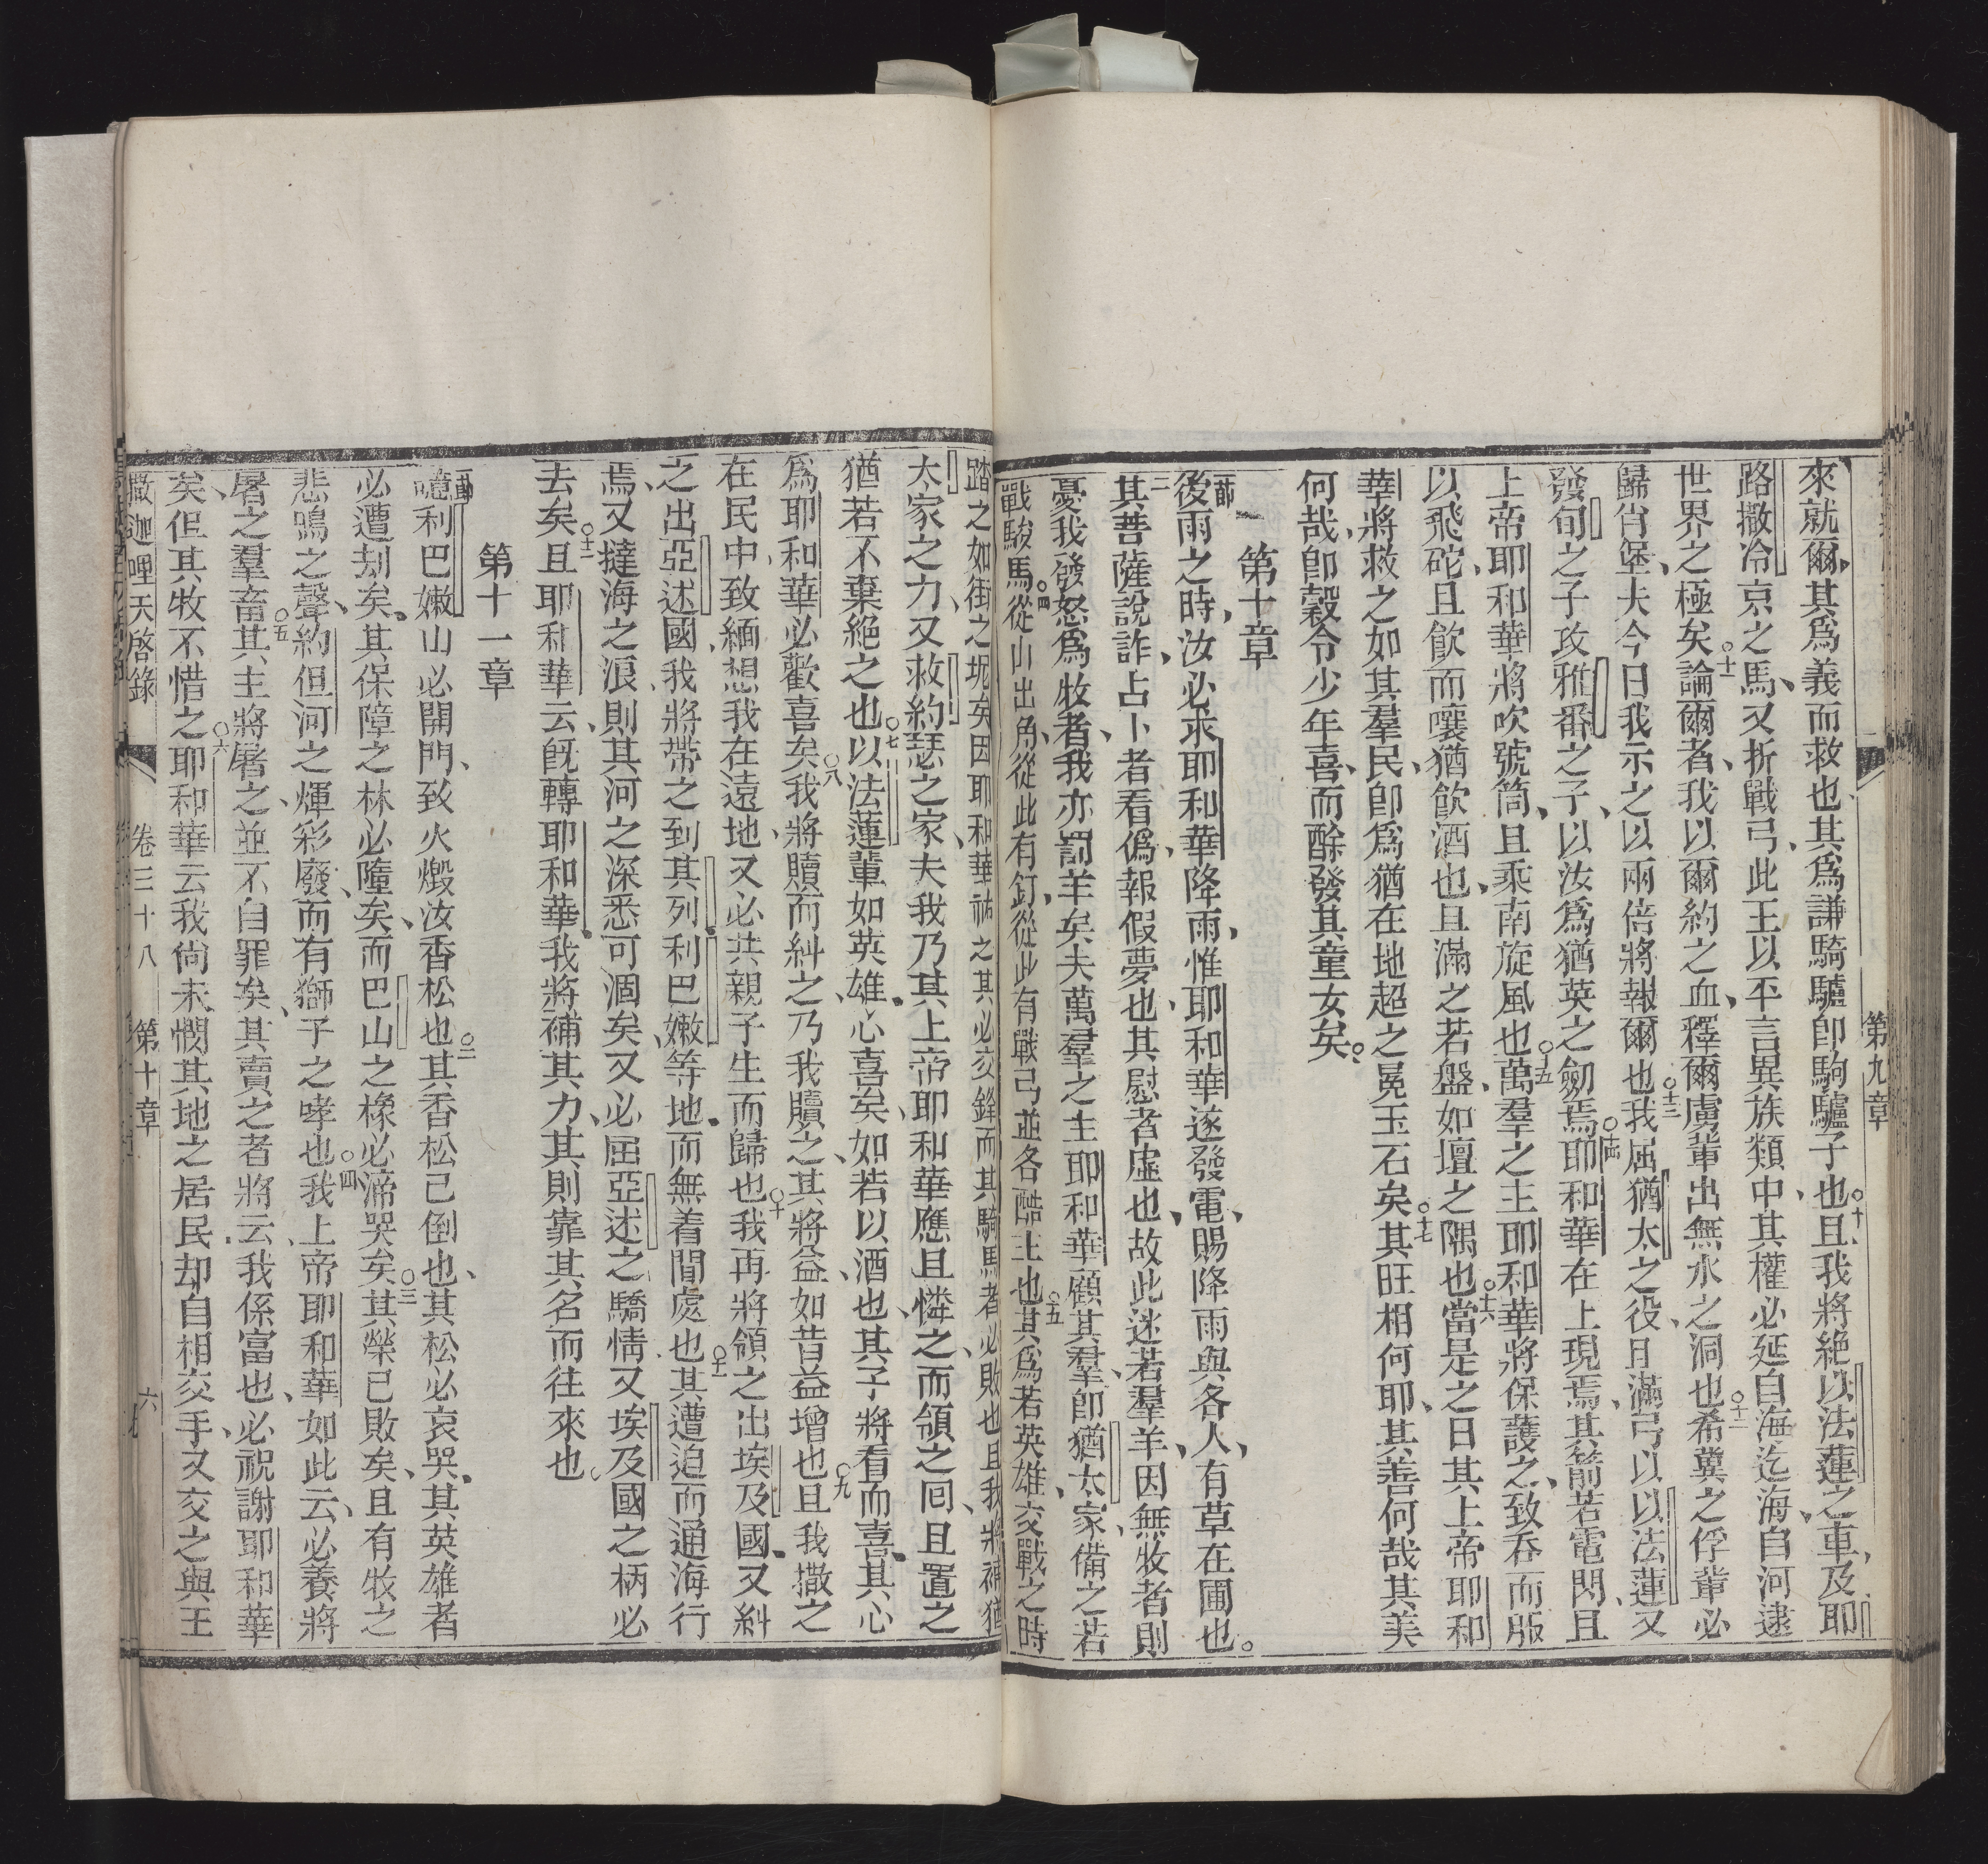 第九章
來就爾、其爲義而救也、其爲謙騎驢卽駒驢子也、○十且我將絶以法蓮之車、及耶
路撒冷京之馬、又折戰弓、此王以平言異族類中、其權必延自海迄海、自河逮
世界之極矣、○十一論爾者、我以爾約之血、釋爾虜輩出無水之洞也、○十二希冀之俘輩必
歸肖堡、夫今日我示之以兩倍將報爾也、○十三我屈猶太之役、且滿弓以以法蓮、又
發旬之子攻雅番之子、以汝爲猶英之劒焉、○十四耶和華在上現焉、其箭若電閃、且
上帝耶和華將吹號筒、且乘南旋風也、○十五萬羣之主耶和華將保護之、致吞而服
以飛砣、且飮而嚷猶飮酒也、且滿之若盤、如壇之隅也、○十六當是之日其上帝耶和
華將救之如其羣民、卽爲猶在地超之冕玉石矣、○十七其旺相何耶、其善何哉其美
何哉、卽穀令少年喜、而酴發其童女矣。
第十章
一節後雨之時、汝必求耶和華降雨、惟耶和華遂發電、賜降雨與各人、有草在圃也。
二其菩薩說詐、占卜者看僞、報假夢也、其慰者虛也、故此迷若羣羊、因無牧者、則
憂我發怒爲牧者、我亦罰羊矣、夫萬羣之主耶和華顧其羣、卽猶太家、備之若
戰駿馬、○四從山出角、從此有釘、從此有戰弓、並各酷主也、○五其爲若英雄、交戰之時
踏之如街之坭矣、因耶和華祐之、其必交鋒、而其騎馬者必敗也、且我將補猶
太家之力、又救約瑟之家、夫我乃其上帝耶和華、應且憐之、而領之囘、且置之
猶若不棄絕之也、○七以法蓮輩如英雄、心喜矣、如若以酒也、其子將看而喜、其心
爲耶和華必歡喜矣、○八我將贖而糾之、乃我贖之、其將益、如昔益增也、○九且我撒之
在民中、致緬想我在遠地、又必共親子生而歸也、○十我再將領之出埃及國、又糾
之出亞述國、我將帶之到其列利巴嫩等地、而無着間處也、○十一其遭迫而通海行
焉、又撻海之浪、則其河之深悉可涸矣、又必屈亞述之驕情、又埃及國之柄必
去矣、○十二且耶和華云、旣轉耶和華、我將補其力、其則靠其名而往來也。
第十一章
一節噫利巴嫩山必開門、致火燬汝香松也、○二其香松已倒也、其松必哀哭、其英雄者
必遭刦矣、其保障之林必墮矣、而巴山之橡必啼哭矣、○三其榮已敗矣、且有牧之
悲鳴之聲、約但河之煇彩廢、而有獅子之哮也、○四我上帝耶和華如此云、必養將
屠之羣畜、○五其主將屠之、並不自罪矣、其賣之者將云、我係富也、必祝謝耶和華
矣、但其牧不惜之、○六耶和華云、我尙未憫其地之居民、却自相交手、又交之與王
撒迦哩天啓錄　卷三十八　第十章　六